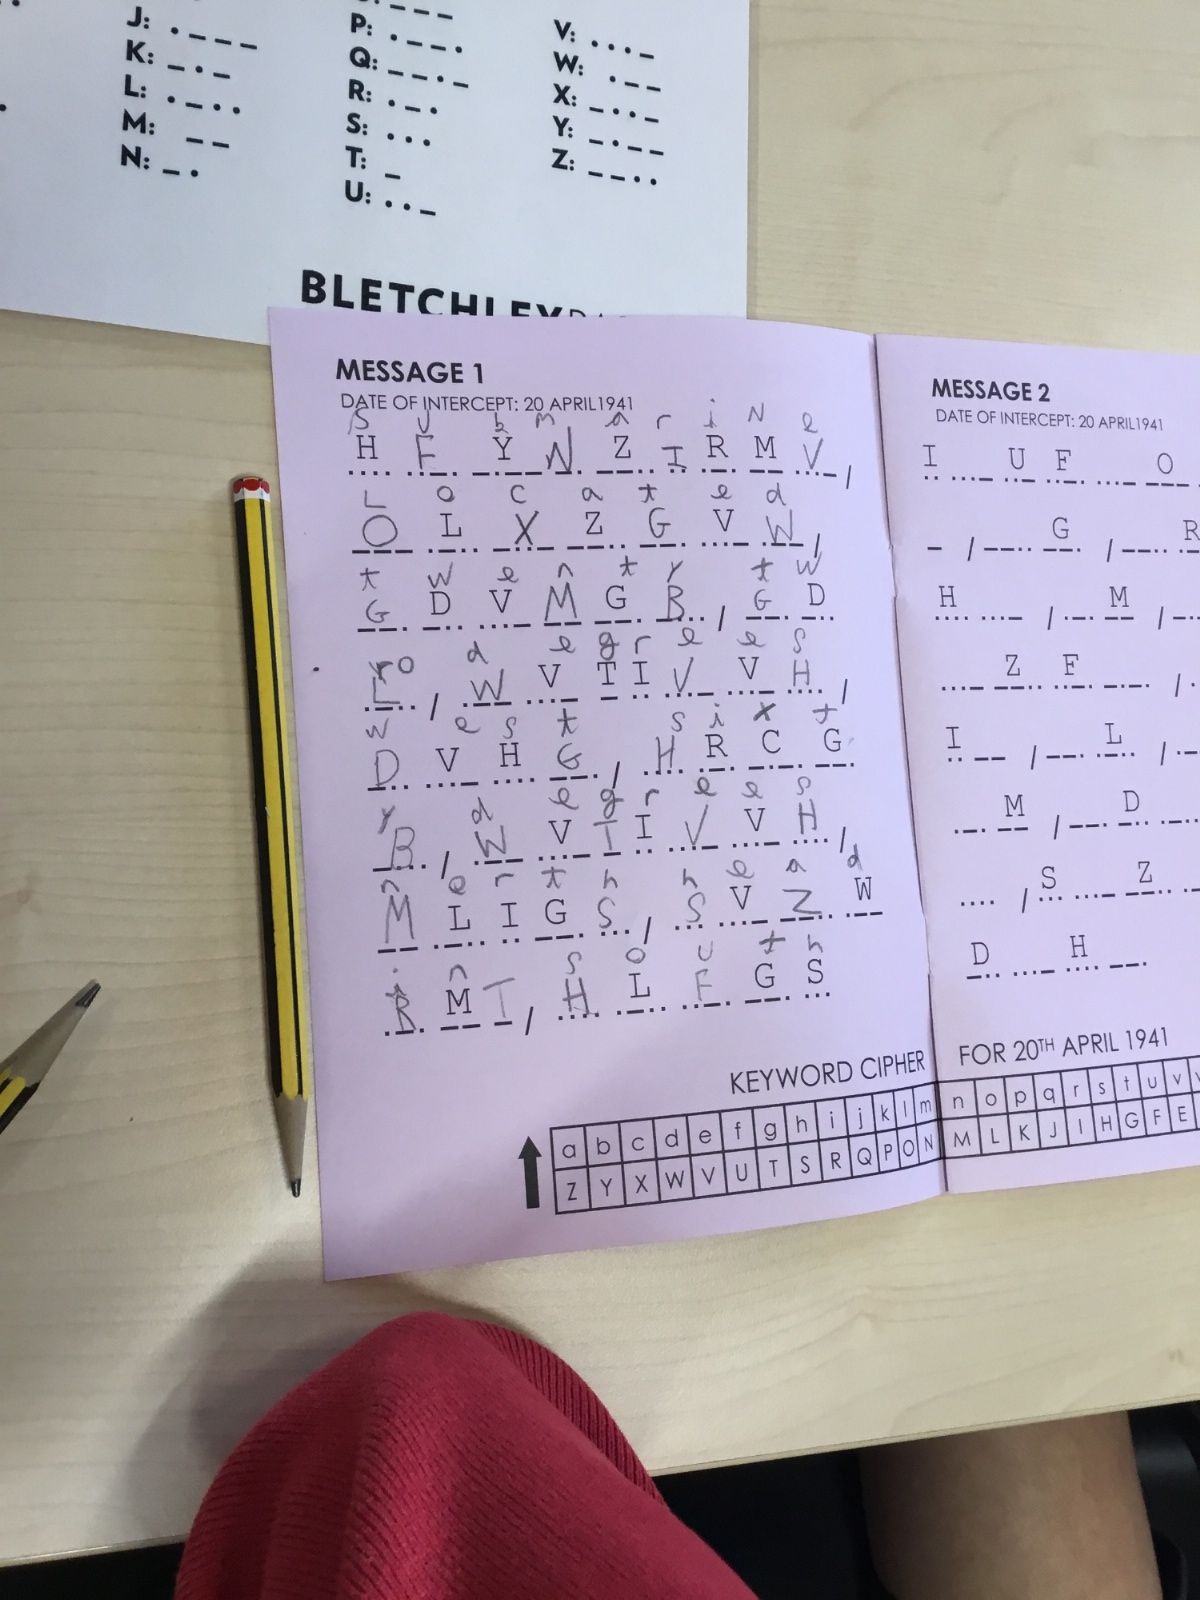 J: .---
K: -.-
L: .-..
M: --
N: -.
P: .--.
Q: --.-
R: .-.
S: ...
T: -
U: ..-
V: ...-
W: .--
X: -..-
Y: -.--
Z: --..
BLETCHLEY
MESSAGE 1
DATE OF INTERCEPT: 20 APRIL1941
S U b m a r i N e
H F Y N Z I R M V /
L o c a t e d
O L X Z G V W /
t w e n t y t w
G D V M G B / G D
o d e g r e e s
L / W V T I V V H /
w e s t s i x t
D V H G / H R C G
y d e g r e e s
B / W V T I V V H /
n o r t h h e a d
M L I G S / S V Z W
i n s o u t h
R M T / H L F G S
KEYWORD CIPHER
a b c d e f g h i j k l m
Z Y X W V U T S R Q P O N
MESSAGE 2
DATE OF INTERCEPT: 20 APRIL 1941
I U F O
G R
H M
Z F
I L
M D
S Z
D H
FOR 20TH APRIL 1941
n o p q r s t u v
M L K J I H G F E